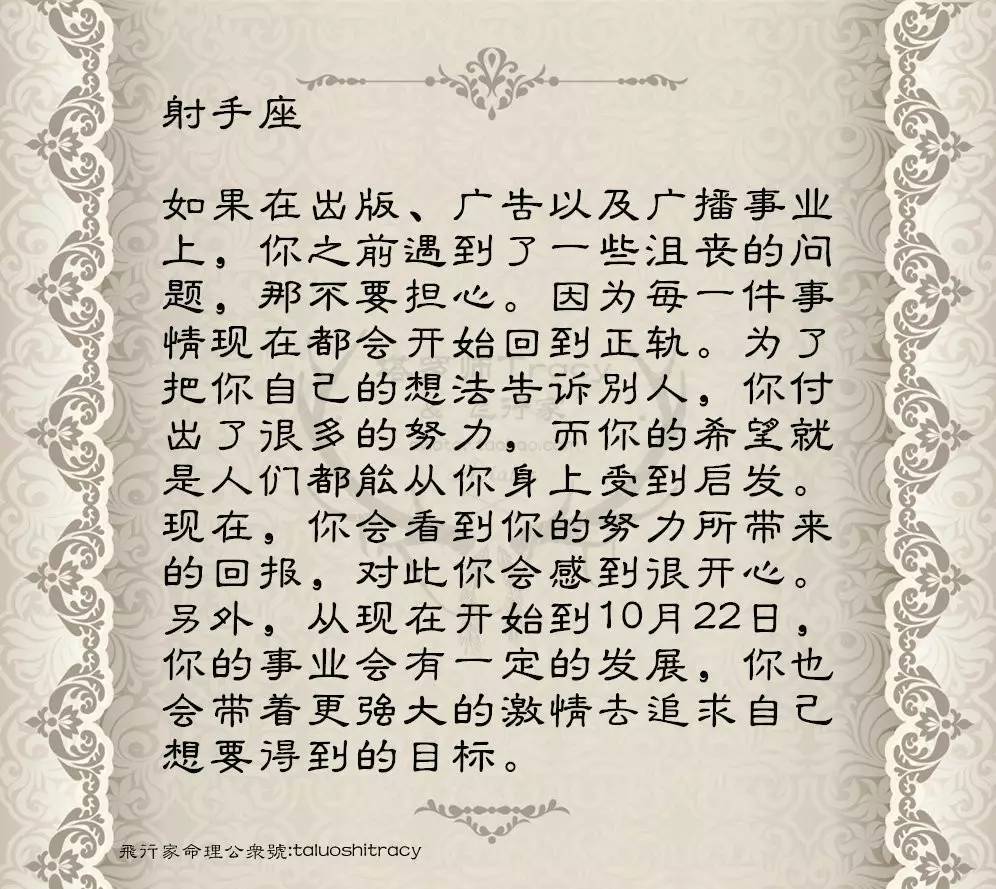 射手座
如果在出版、广告以及广播事业
上，你之前遇到了一些沮丧的问
题，那不要担心。因为每一件事
情现在都会开始回到正轨。为了
把你自己的想法告诉别人，你付
出了很多的努力，而你的希望就
是人们都能从你身上受到启发。
现在，你会看到你的努力所带来
的回报，对此你会感到很开心。
另外，从现在开始到10月22日，
你的事业会有一定的发展，你也
会带着更强大的激情去追求自己
想要得到的目标。
飛行家命理公衆號:taluoshitracy